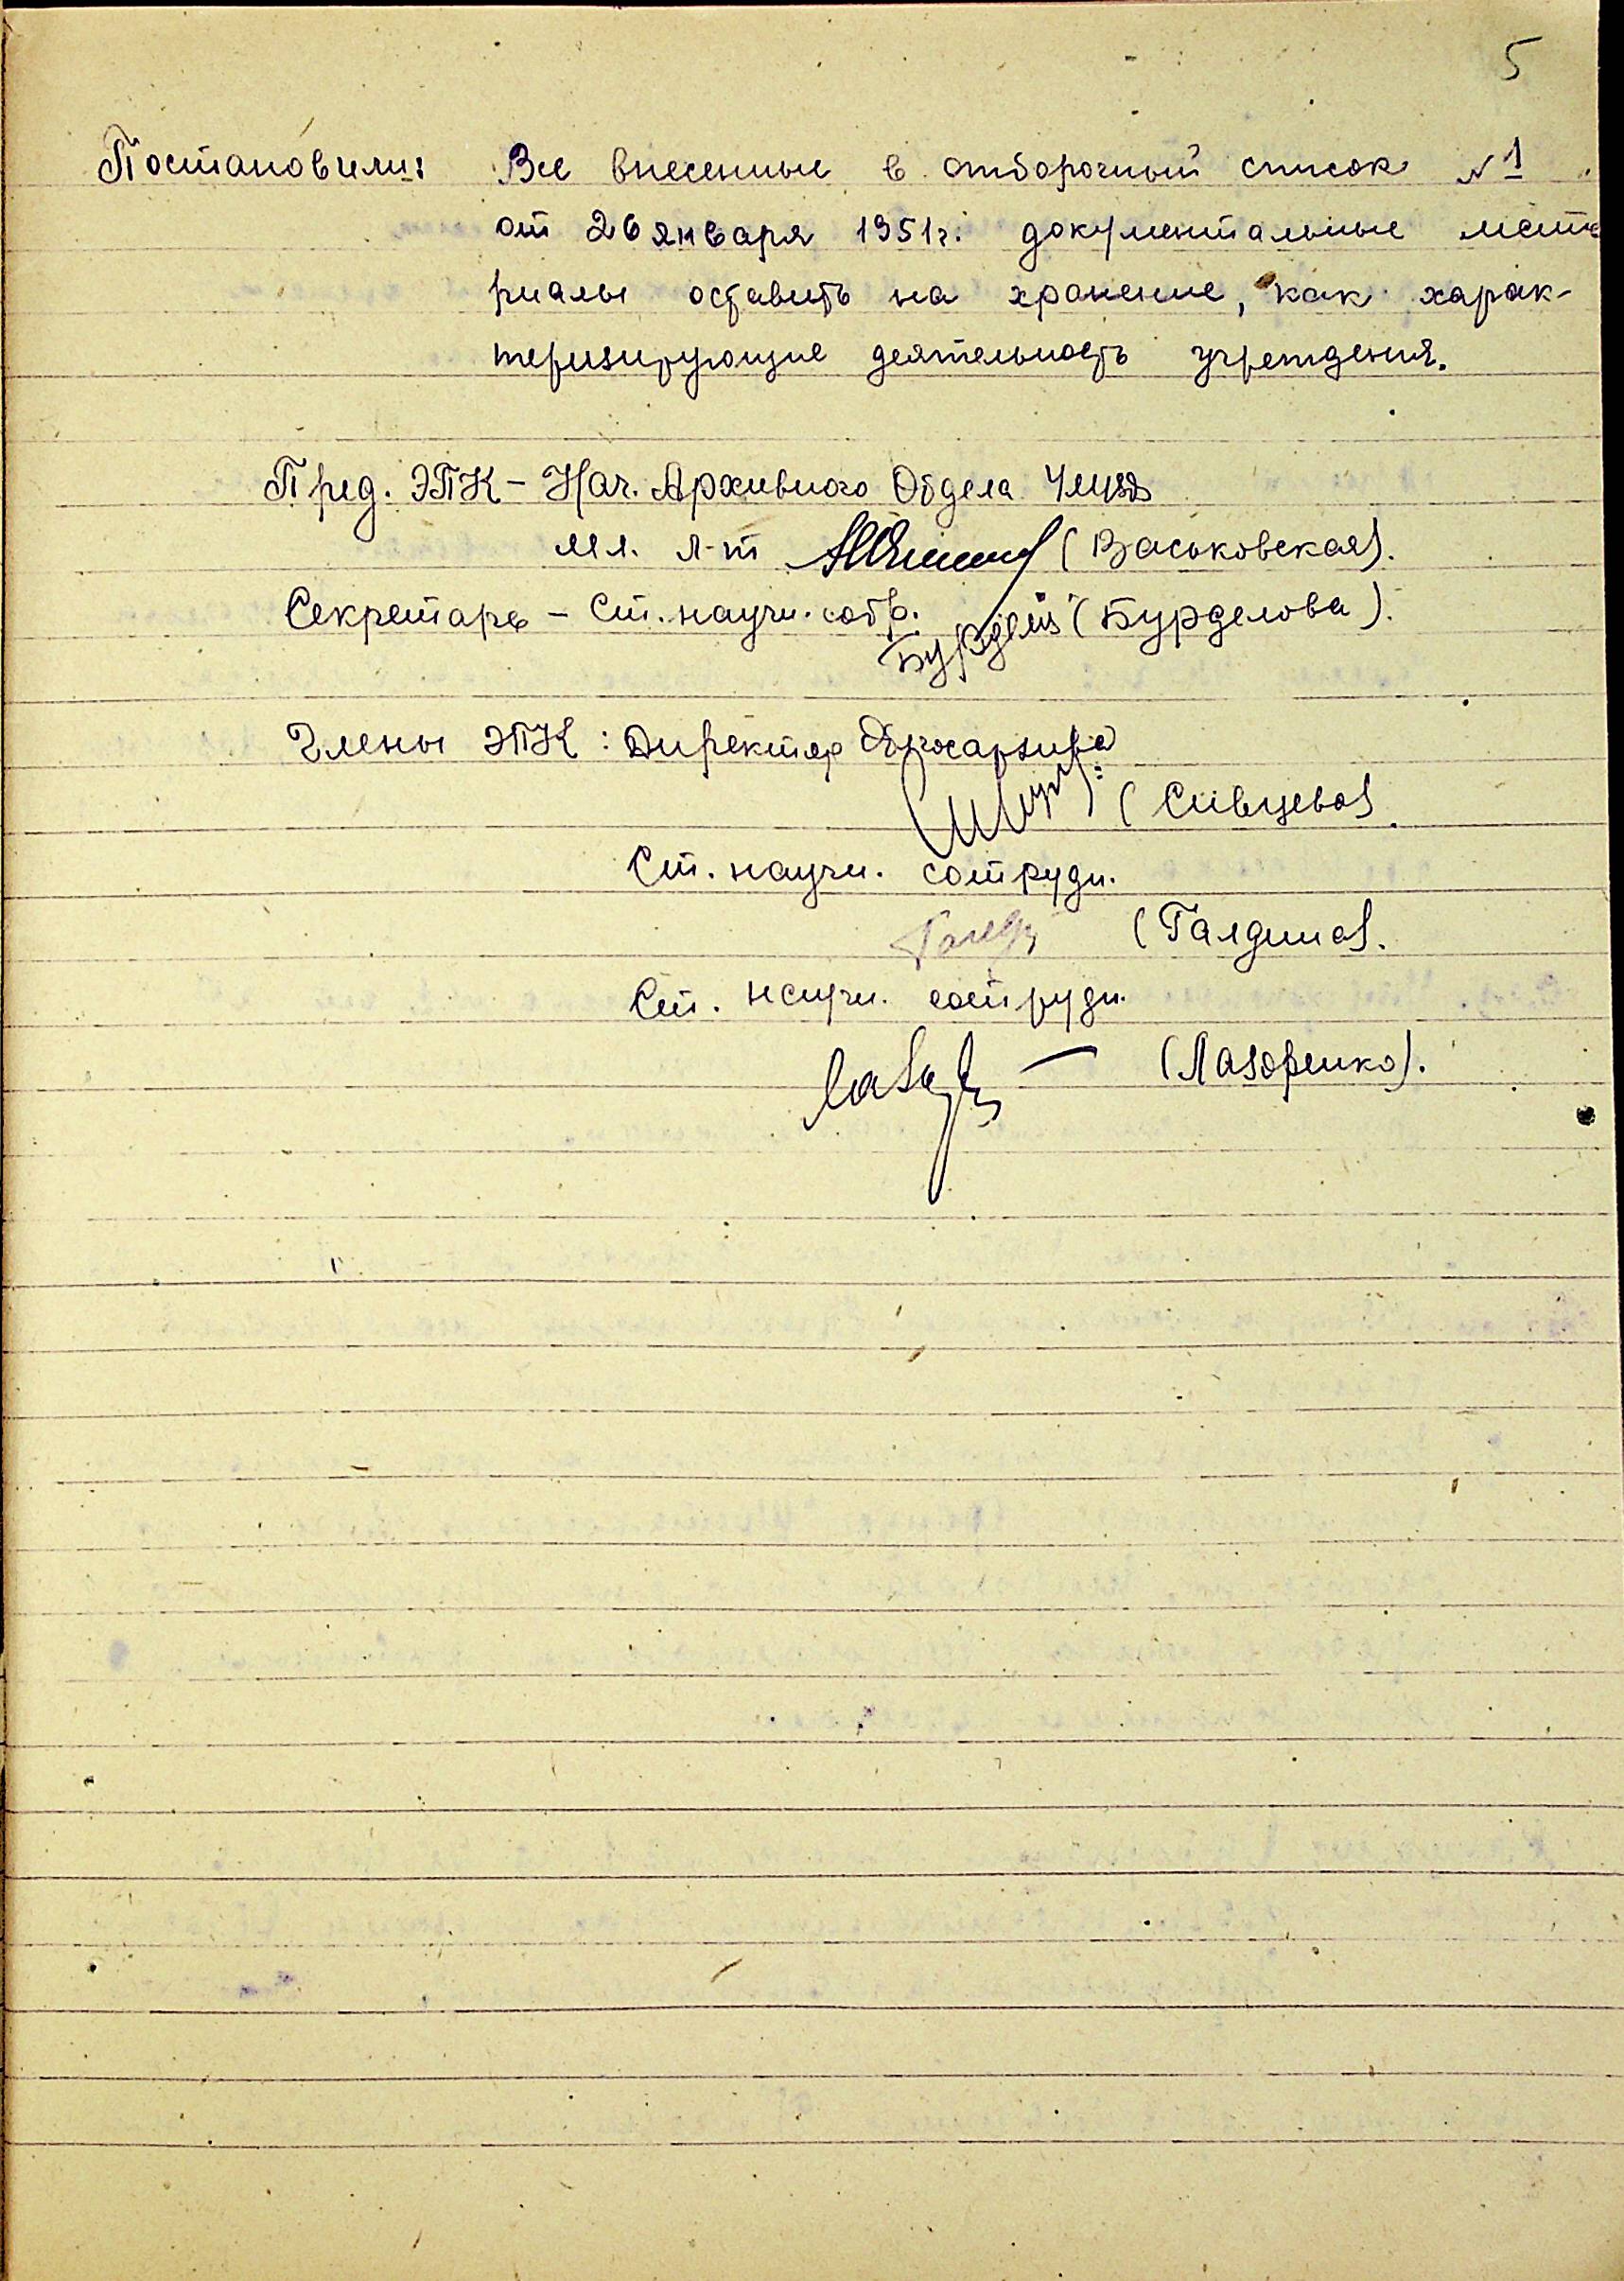 5
Постановили: Все внесенные в отборочный список №1
от 26 января 1951г. документальные мате
риалы оставить на хранение, как харак-
теризирующие деятельность учреждения.
Пред. ЭПК - Нач. Архивного Отдела
мл. л-т (Васьковская).
Секретарь - Ст. научн. сотр. (Бурделова).
Члены ЭПК: Директор Облгосархива
(Сивцева)
Ст. научн. сотрудн.
(Галдина).
Ст. научн. сотрудн.
(Лазоренко).